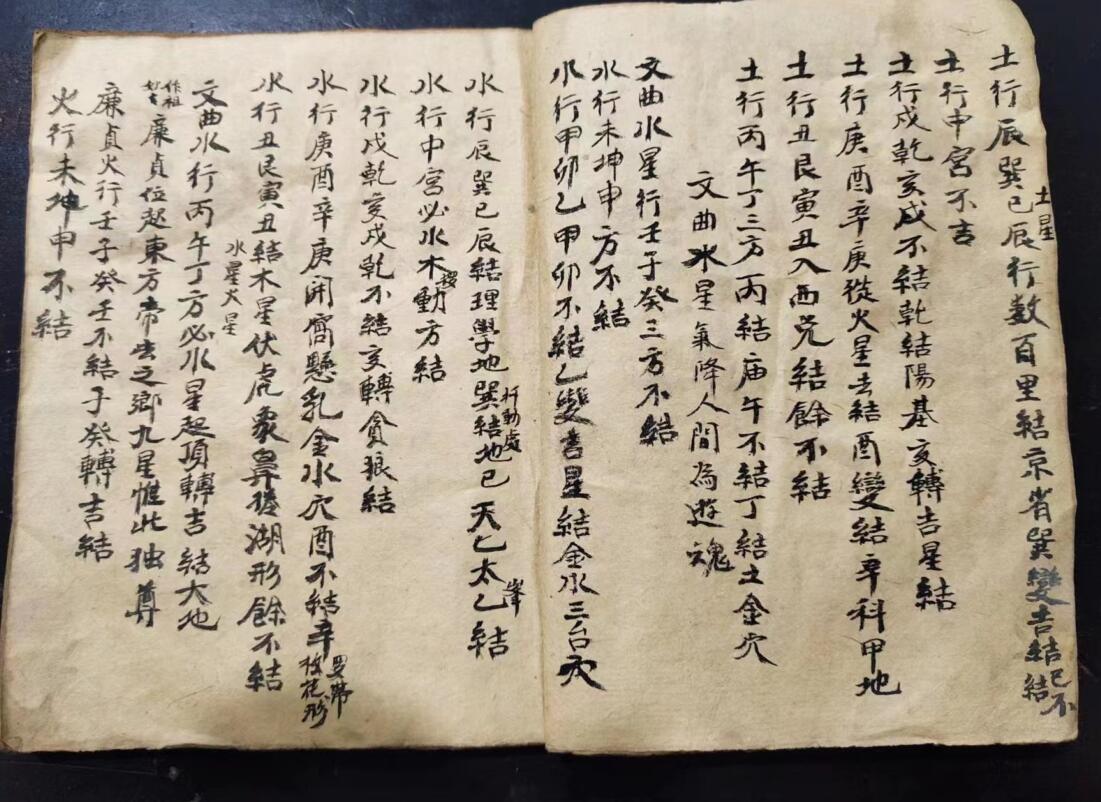 土行辰巽巳辰行数百里结京省巽變吉結巳不結
土星
土行中宮不吉
土行戌乾亥戌不结乾结陽基亥轉吉星結
土行庚酉辛庚從火星去結酉變结辛科甲地
土行丑艮寅丑入西兑結餘不結
土行丙午丁三方丙結庙午不结丁結土金穴
文曲水星氣降人間為遊魂
文曲水星行壬子癸三方不結
水行未坤申方不結
水行甲卯乙甲卯不結乙變吉星結金水三台穴
水行辰巽巳辰結理學地巽结地巳天乙太乙結
行動處
峯
水行中宮必水木動方結
水行戌乾亥戌乾不結亥轉貪狼結
水行庚酉辛庚開窩懸乳金水穴酉不結辛
枝花形
水行丑艮寅丑結木星伏虎象鼻形餘不結
水星火星
文曲水行丙午丁方必水星起頂轉吉結大地
作祖
廉貞位起東方帝出之鄉九星惟此独尊
廉貞火行壬子癸壬不結子癸轉吉結
火行未坤申不結